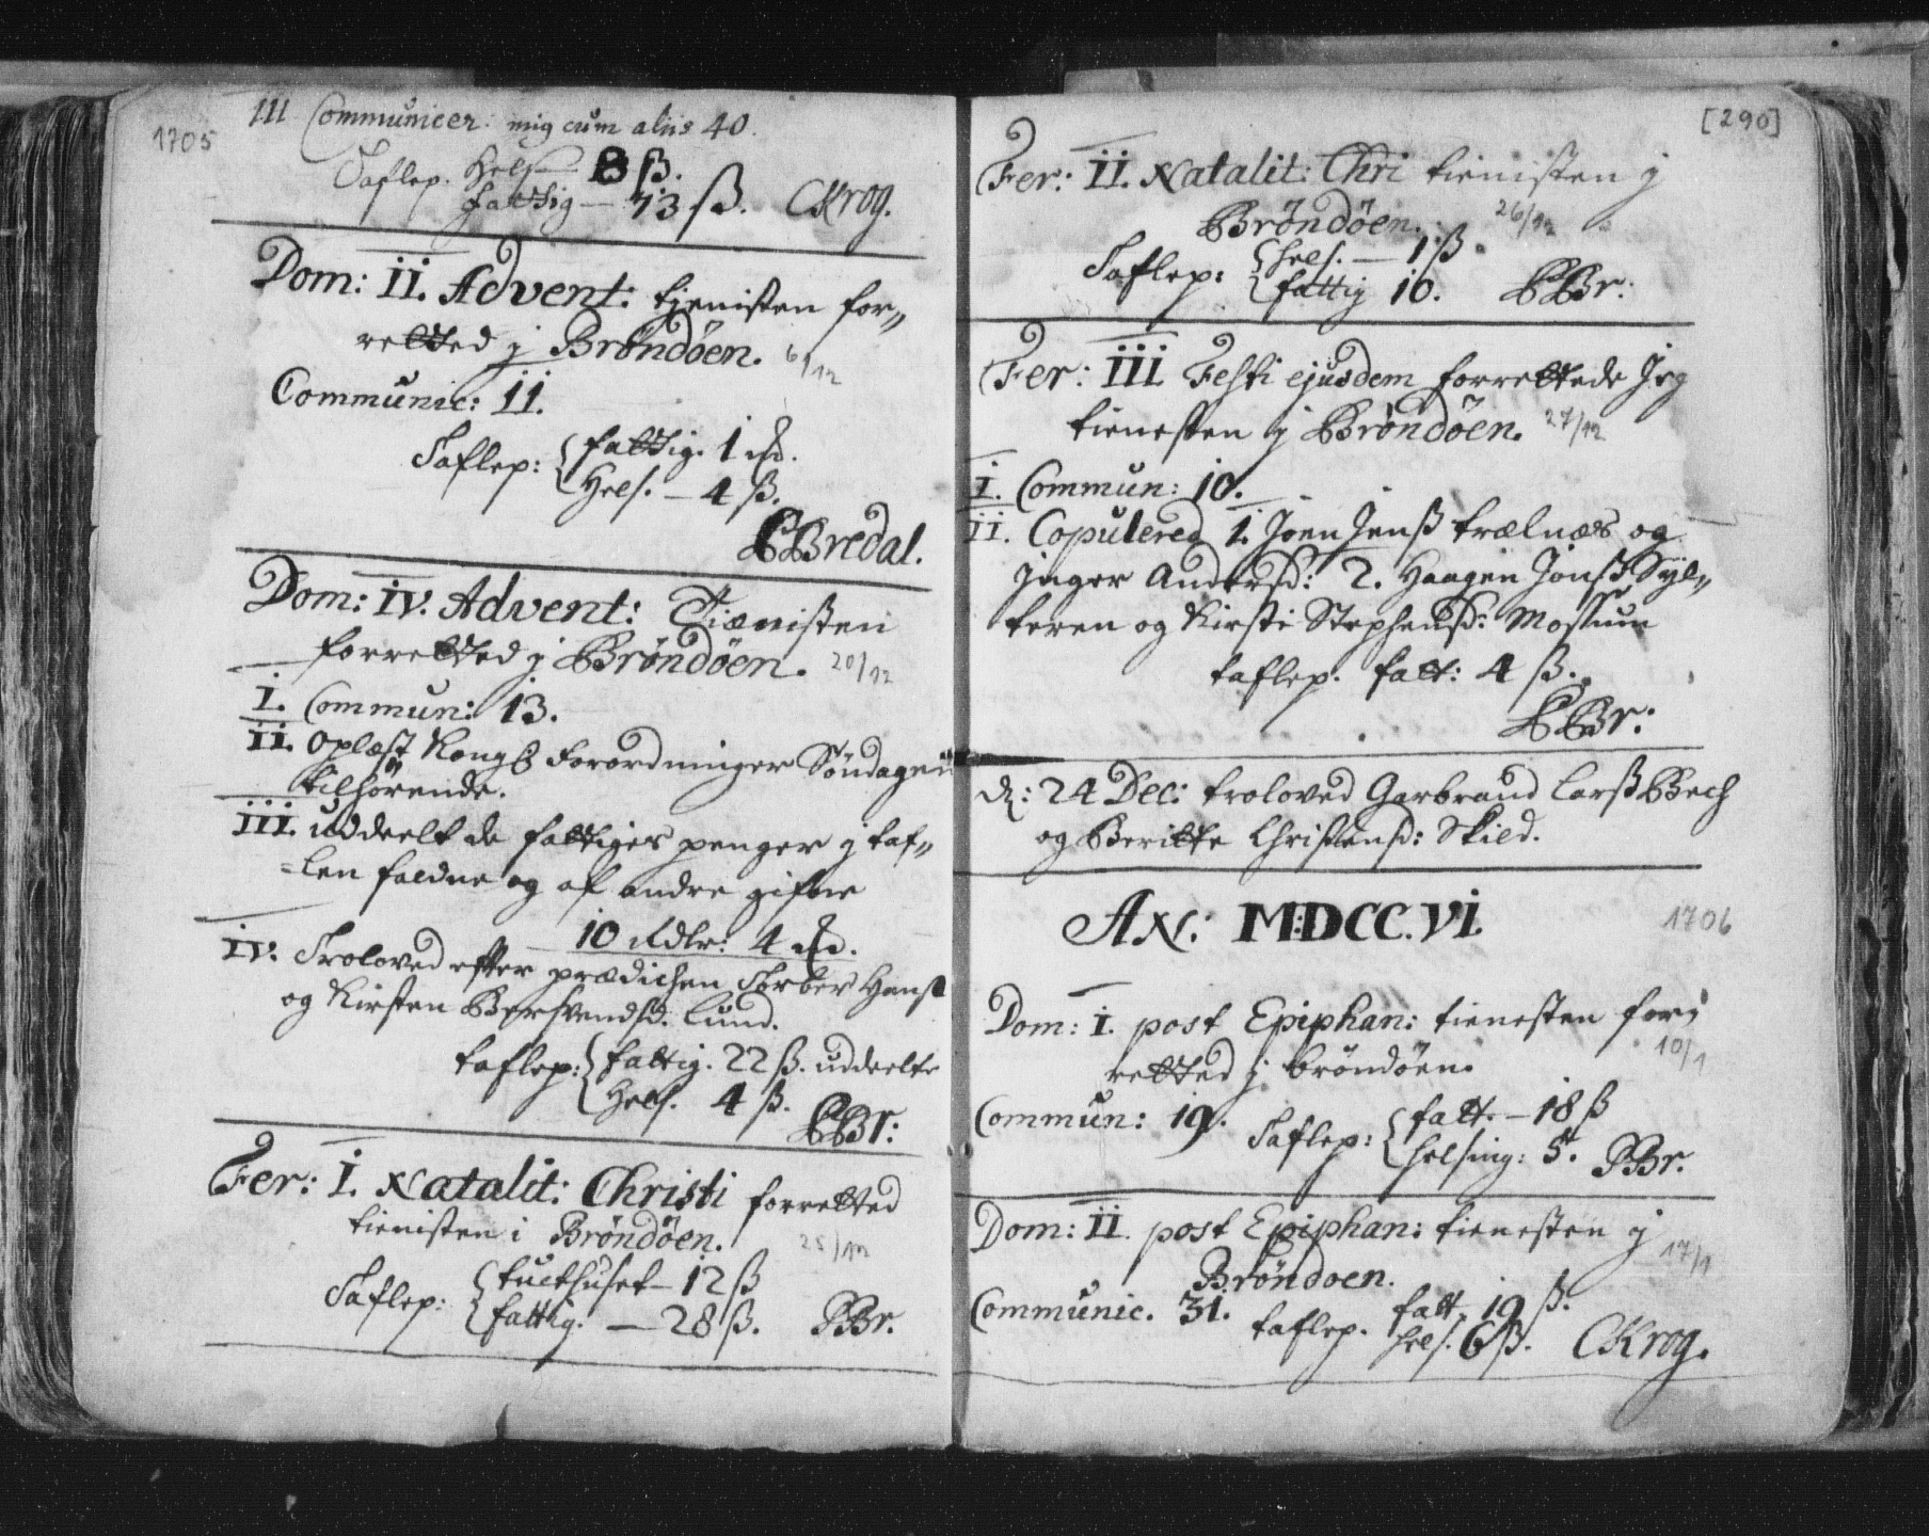 1705
III Communicer: mig cum aliis 40.
Taflep. Hels — 8 ß.
fattig — 73 ß. CKrog.
Dom: II. Advent: tienisten for„
retted j Brøndøen. 6/12
Communic: 11.
Taflep: fattig. 1 md.
Hels. — 4 ß.
PBredal.
Dom: IV. Advent: Tienisten
forretted j Brøndøen. 20/12
I. Commun: 13.
II. Oplæst Kongß Forordninger Søndagen
tilhørende.
III. uddeelt de fattiges penger j taf„
=len faldne og af andre gifne
10 Rdlr: 4 md.
IV. Troloved efter prædichen Torber Hanß
og Kirsten Bersvendsd. Lund.
taflep: fattig. 22 ß. uddeelte
Hels. 4 ß.
PBr:
Fer: I. Natalit: Christi forretted
tienisten i Brøndøen. 25/12
Taflep: tuckthuset — 12 ß
fattig. — 28 ß. PBr.
[290]
Fer: II. Natalit: Chri tienisten j
Brøndøen. 26/12
Taflep: hels. — 1 ß
fattig 10. PBr:
Fer: III Festi ejusdem forrettede Jeg
tienesten j Brøndøen. 27/12
I. Commun: 10.
II. Copulered 1. Joen Jenß trælnæs og
Inger Andersd: 2. Haagen Jonß Syl„
teren og Kirsti Stephensd: Mossum
taflep. fatt: 4 ß.
PBr:
d: 24 Dec: troloved Garbrand Larß Bech
og Beritte Christensd: Skild.
AN: M:DCC.VI.
1706
Dom: I. post Epiphan: tienesten for„
retted j brøndøen. 10/1
Commun: 19. Taflep: fatt. — 18 ß
helsing: 5. PBr.
Dom: II. post Epiphan: tienesten j
Brøndoen. 17/1
Communic. 31. taflep. fatt. 19 ß.
hels. 6 ß. CKrog.